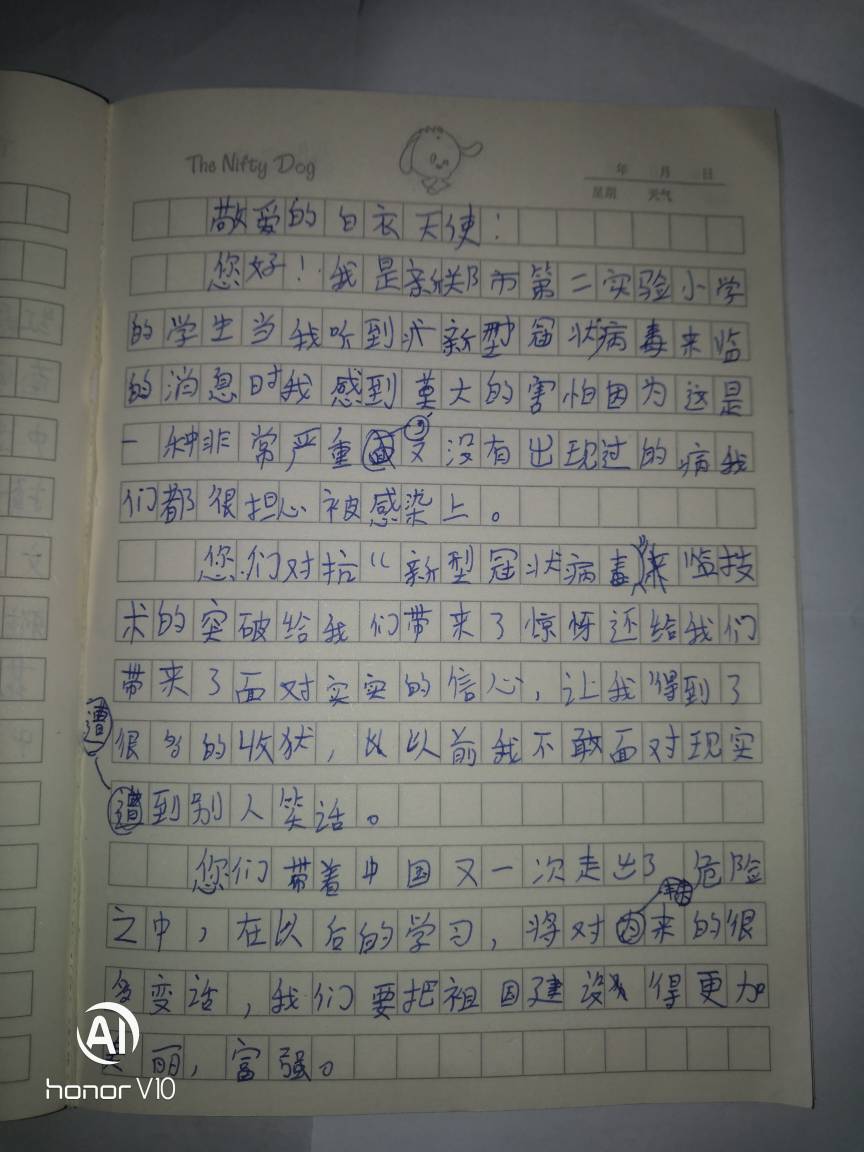 The Nifty Dog
年 月 日
星期 天气
敬爱的白衣天使：
您好！我是新郑市第二实验小学
的学生当我听到新型冠状病毒来监
的消息时我感到莫大的害怕因为这是
一种非常严重又没有出现过的病我
们都很担心被感染上。
您们对抗“新型冠状病毒”来监技
术的突破给我们带来了惊怀还给我们
带来了面对实实的信心，让我得到了
很多的收状，以以前我不敢面对现实
遭到别人笑话。
您们带着中国又一次走出了危险
之中，在以后的学习，将对来的很
多变话，我们要把祖国建设得更加
丽，富强。
AI
honor V10